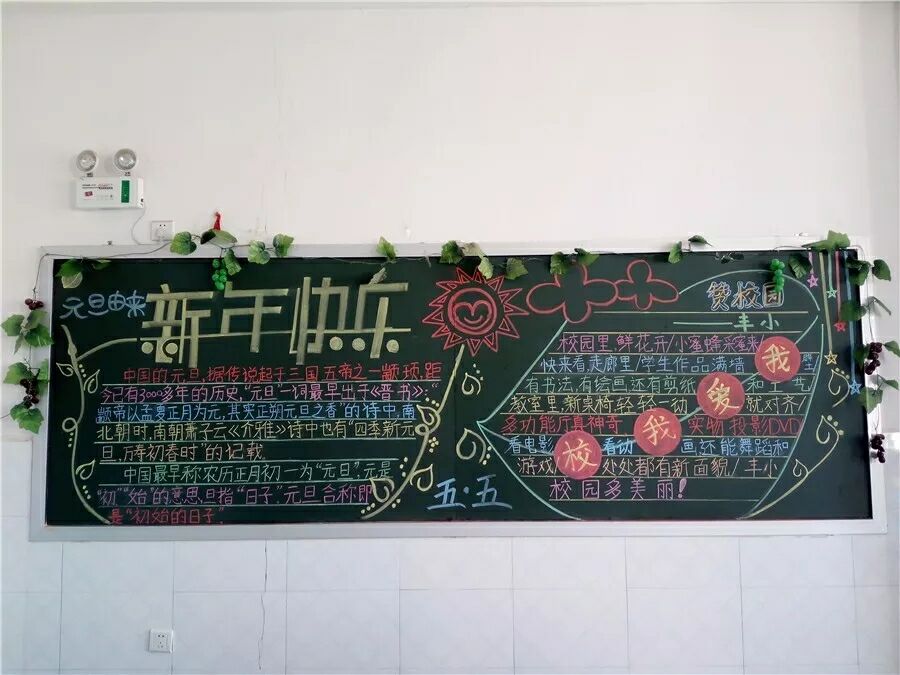 元旦由来
新年快乐
中国的元旦,据传说起于三国五帝之一颛顼,距
今已有3000多年的历史,"元旦"一词最早出于《晋书》:
颛帝以孟夏正月为元,其实正朔元旦之香"的诗中,南
北朝时,南朝萧子云《介雅》诗中也有"四季新元
旦,万寿初春时"的记载.
中国最早称农历正月初一为"元旦",元是
"初""始"的意思,旦指"日子",元旦合称即
是"初始的日子".
五·五
赞校园
——丰小
校园里,鲜花开/小蜜蜂采蜜来/
快来看,走廊里/学生作品满墙壁/
有书法,有绘画还有剪纸和
教室里,新桌椅轻轻一动就对齐/
多功能厅真神奇 实物投影DVD
看电影 看动画还能舞蹈和
游戏 处处都有新面貌/丰小
校园多美丽!
我
爱
我
校